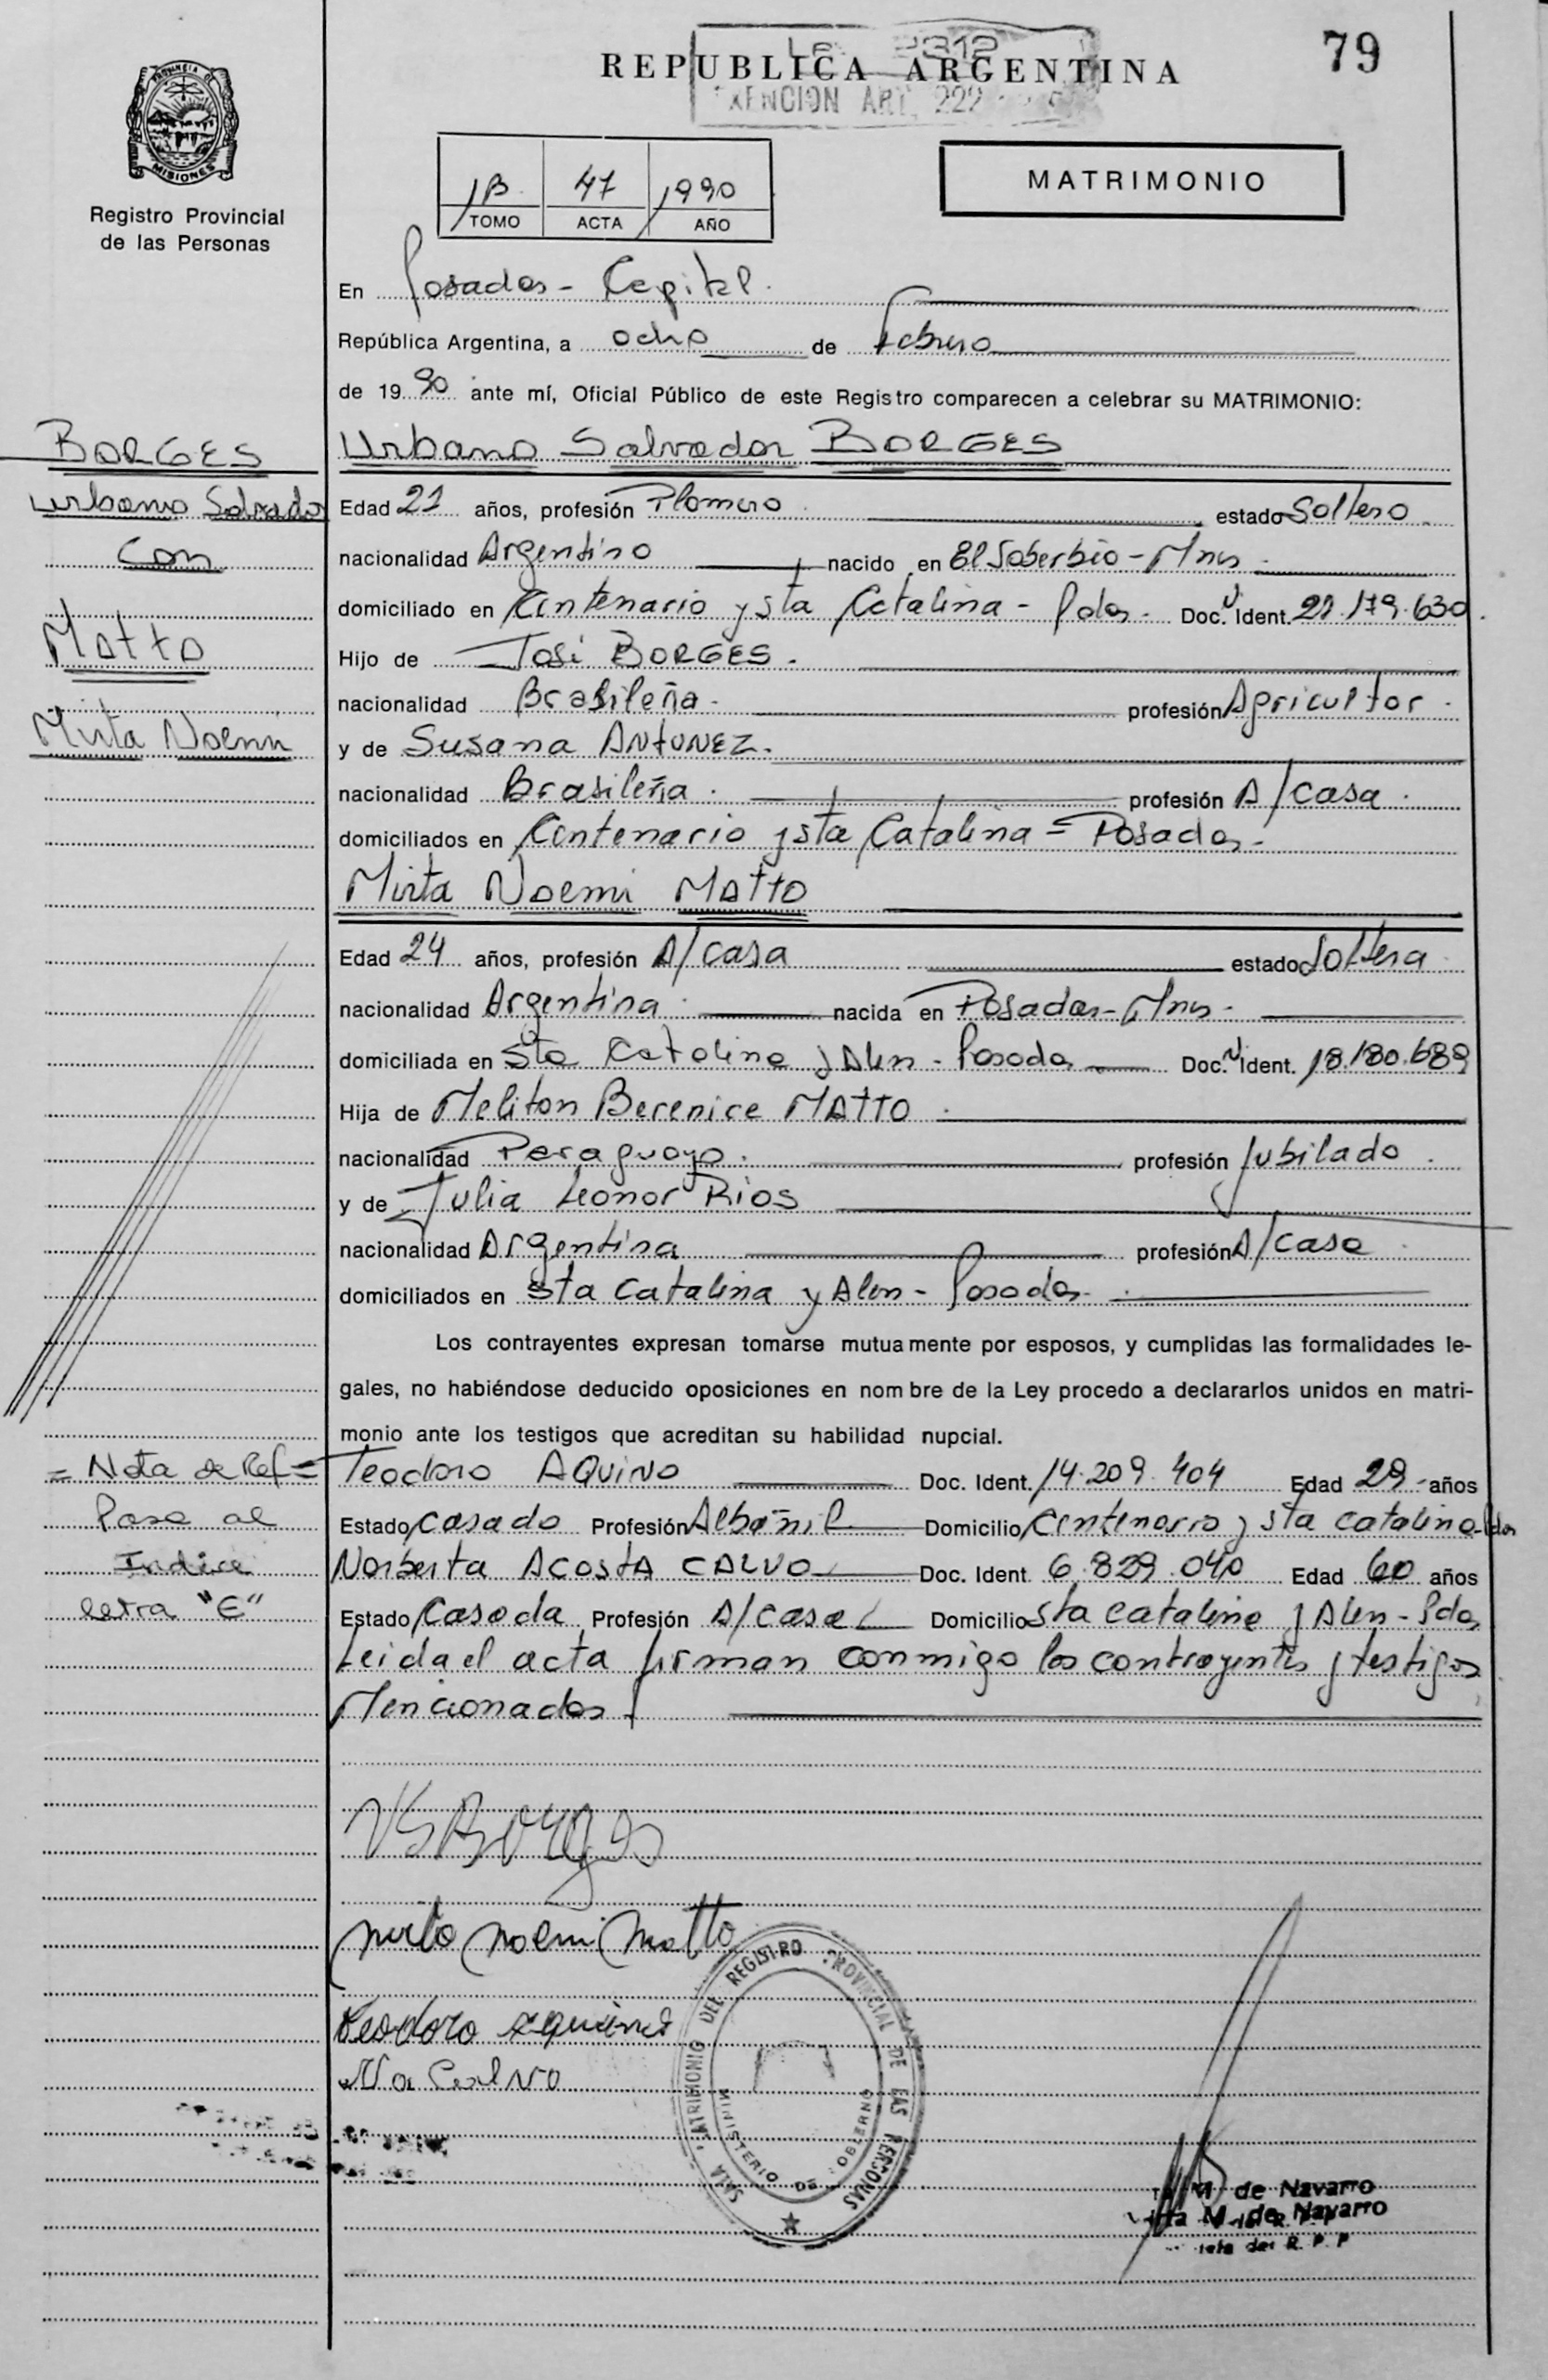 79
REPUBLICA ARGENTINA
EXENCION ART. 222
PROVINCIA DE
MISIONES
Registro Provincial
de las Personas
1B 47 1990
TOMO ACTA AÑO
MATRIMONIO
En Posadas - Capital.
República Argentina, a ocho de febrero
de 1990 ante mí, Oficial Público de este Registro comparecen a celebrar su MATRIMONIO:
BORGES
Urbano Salvador
con
Matto
Mirta Noemi
Urbano Salvador BORGES
Edad 21 años, profesión Plomero estado Soltero
nacionalidad Argentino nacido en El Soberbio - Mnes
domiciliado en Centenario y Sta Catalina - Pdas. Doc. N. Ident. 21.179.630.
Hijo de José BORGES.
nacionalidad Brasileña. profesión Agricultor.
y de Susana ANTUNEZ.
nacionalidad Brasileña. profesión A/casa.
domiciliados en Centenario y Sta Catalina = Posadas -
Mirta Noemi MATTO
Edad 24 años, profesión A/casa estado Soltera
nacionalidad Argentina. nacida en Posadas - Mnes -
domiciliada en Sta Catalina y Alen - Posadas Doc. N. Ident. 18.180.689
Hija de Meliton Berenice MATTO.
nacionalidad Paraguayo. profesión Jubilado.
y de Julia Leonor Rios
nacionalidad Argentina profesión A/casa.
domiciliados en Sta Catalina y Alen - Posadas.
Los contrayentes expresan tomarse mutuamente por esposos, y cumplidas las formalidades le-
gales, no habiéndose deducido oposiciones en nombre de la Ley procedo a declararlos unidos en matri-
monio ante los testigos que acreditan su habilidad nupcial.
= Nota de Ref =
Pase al
Indice
letra "E"
Teodoro AQUINO Doc. Ident. 14.209.404 Edad 29 años
Estado casado Profesión Albañil Domicilio Centenario y Sta Catalina - Pdas
Norberta ACOSTA CALVO Doc. Ident 6.829.040 Edad 60 años
Estado Casada Profesión A/casa Domicilio Sta Catalina y Alen - Pdas
Leida el acta firman conmigo los contrayentes y testigos
Mencionados.
USBorges
Mirta Noemi Matto
Teodoro Aquino
Na Calvo
SALA MATRIMONIO DEL REGISTRO PROVINCIAL DE LAS PERSONAS
MINISTERIO DE GOBIERNO
M de Navarro
M. de Navarro
R. P. P